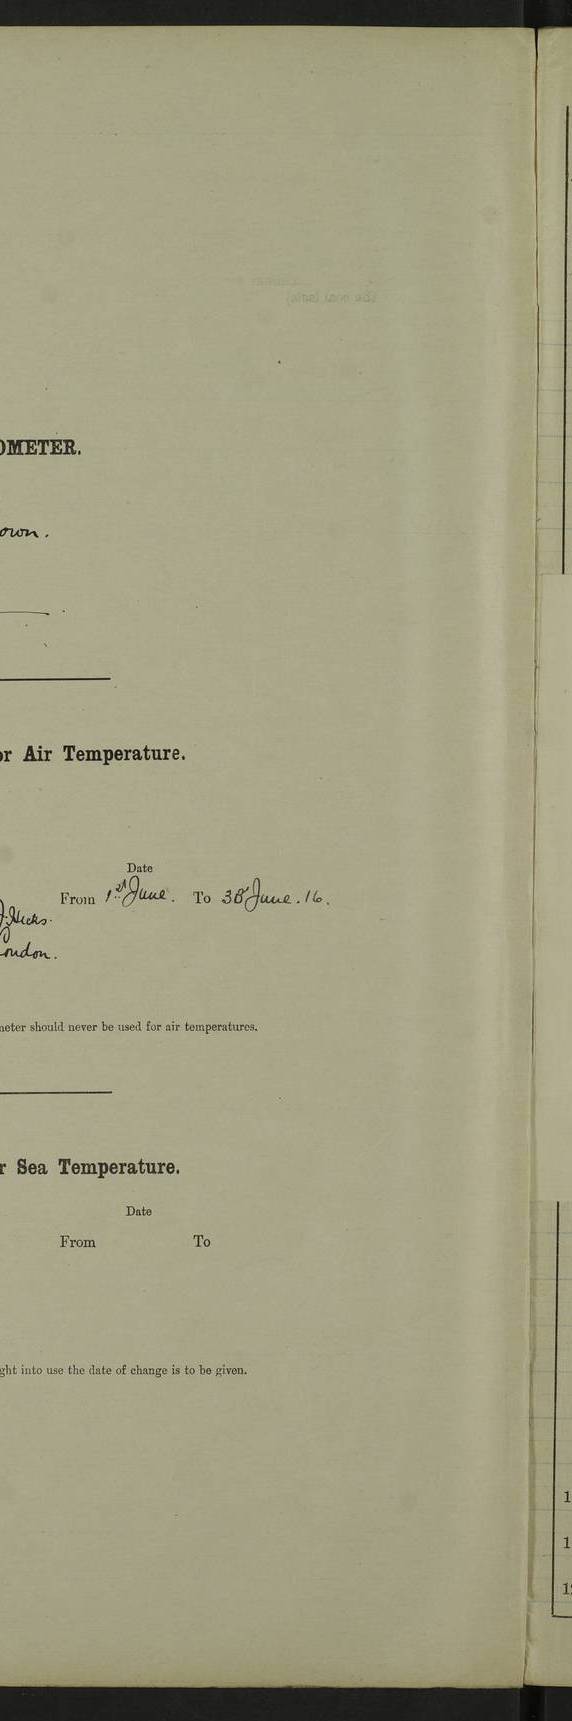 OMETER.
own.
or Air Temperature.
Date
From 1st June. To 30 June. 16.
J. Hicks.
London.
meter should never be used for air temperatures.
r Sea Temperature.
Date
From To
ght into use the date of change is to be given.
1
1
12